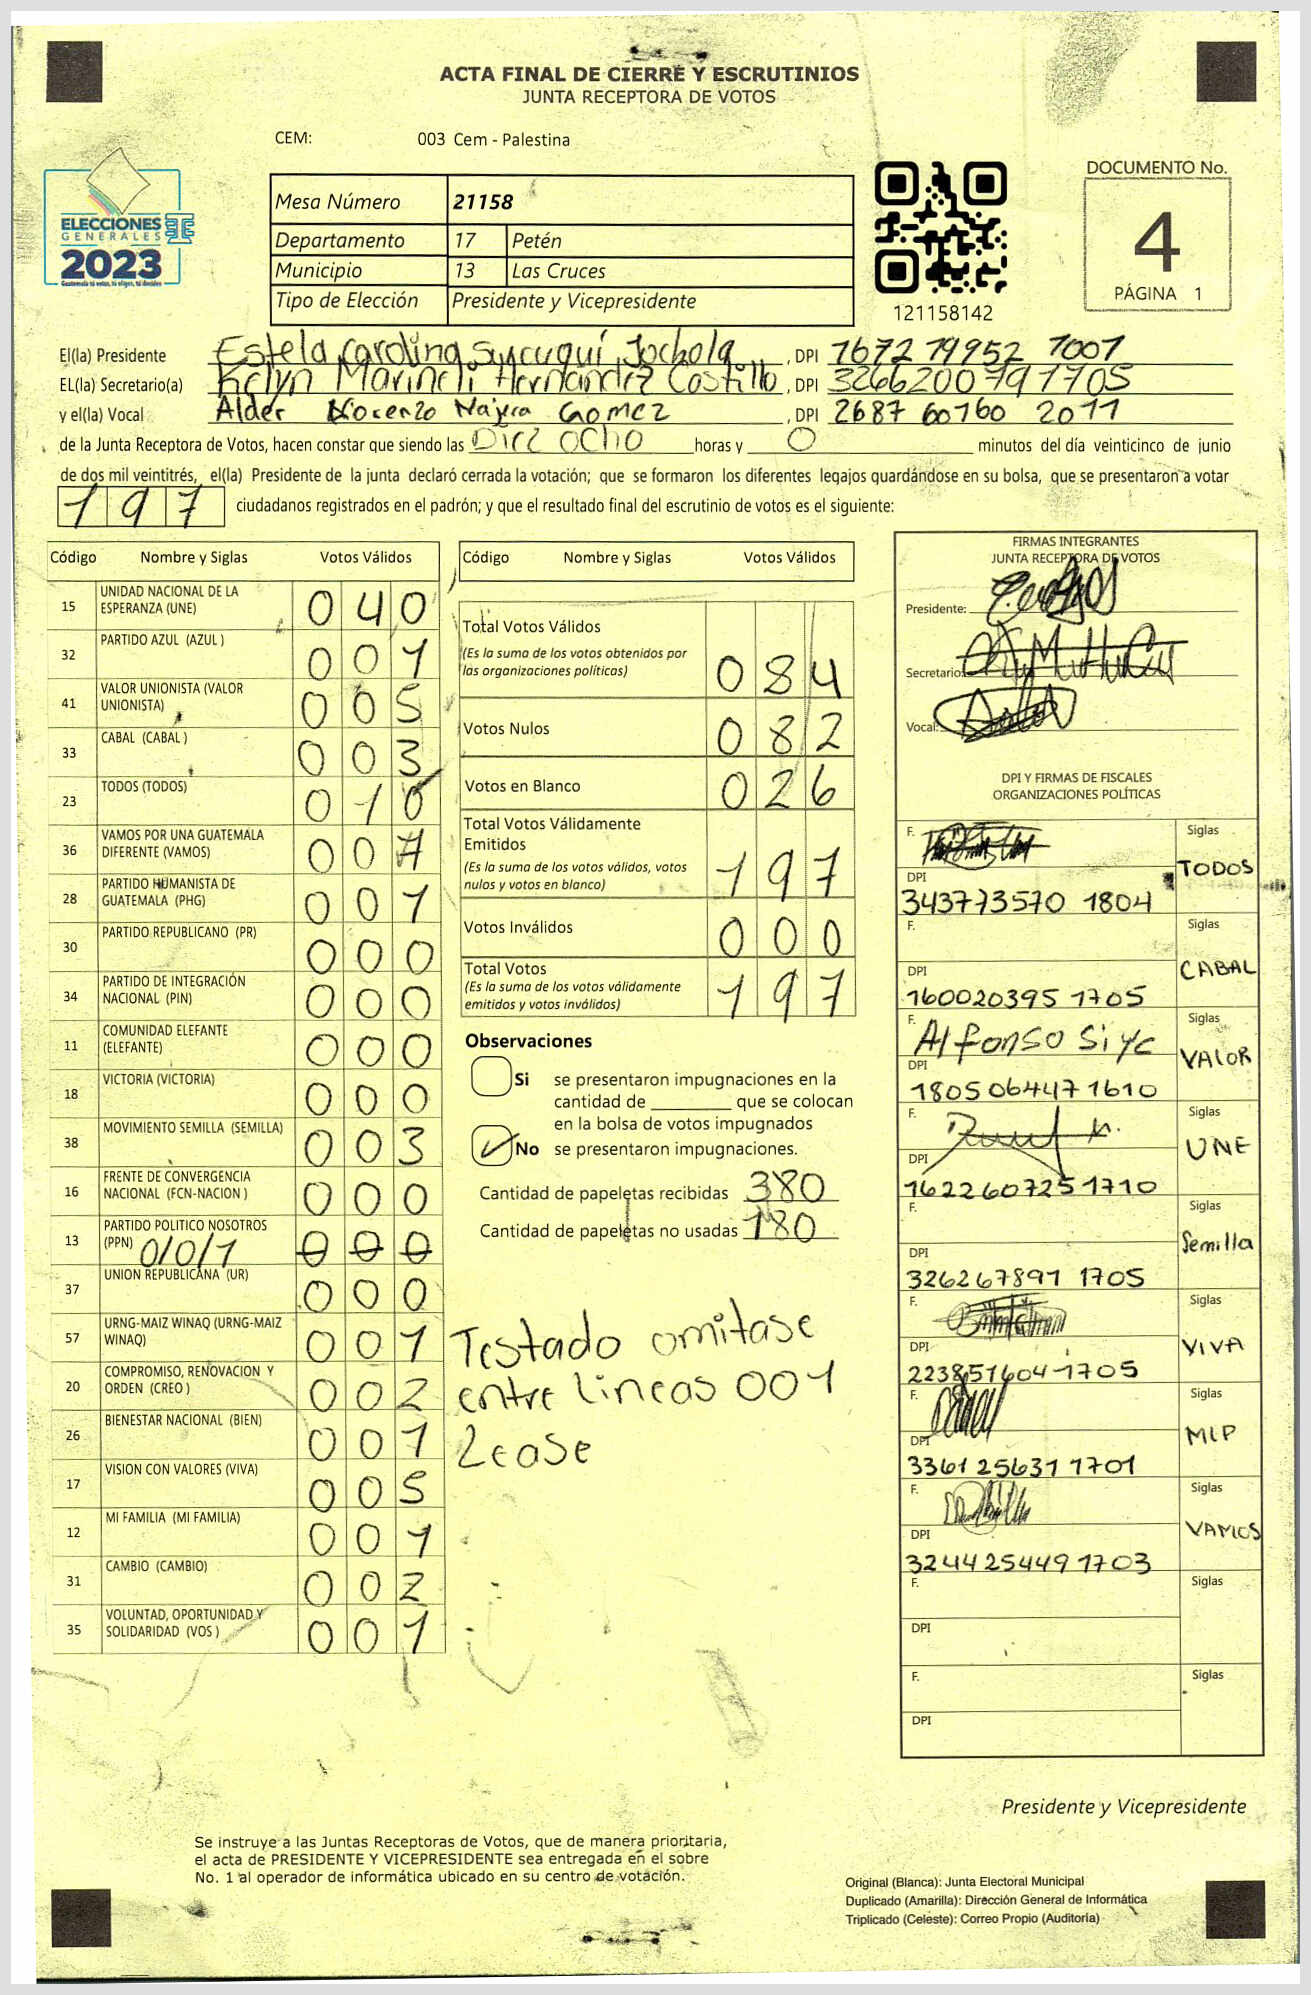 ACTA FINAL DE CIERRE Y ESCRUTINIOS
JUNTA RECEPTORA DE VOTOS
CEM: 003 Cem - Palestina
ELECCIONES
GENERALES
2023
Guatemala tú votas, tú eliges, tú decides
Mesa Número 21158
Departamento 17 Petén
Municipio 13 Las Cruces
Tipo de Elección Presidente y Vicepresidente
121158142
DOCUMENTO No.
4
PÁGINA 1
El(la) Presidente Estela Carolina Jochola, DPI 1672 19952 1001
EL(la) Secretario(a) Kelyn Marineli Hernández Costillo, DPI 3266200791705
y el(la) Vocal Alder Nájera Gomez, DPI 2687 60160 2011
de la Junta Receptora de Votos, hacen constar que siendo las Diez ocho horas y 0 minutos del día veinticinco de junio
de dos mil veintitrés, el(la) Presidente de la junta declaró cerrada la votación; que se formaron los diferentes legajos guardándose en su bolsa, que se presentaron a votar
197 ciudadanos registrados en el padrón; y que el resultado final del escrutinio de votos es el siguiente:
Código Nombre y Siglas Votos Válidos
15 UNIDAD NACIONAL DE LA ESPERANZA (UNE) 040
32 PARTIDO AZUL (AZUL ) 001
41 VALOR UNIONISTA (VALOR UNIONISTA) 005
33 CABAL (CABAL ) 003
23 TODOS (TODOS) 010
36 VAMOS POR UNA GUATEMALA DIFERENTE (VAMOS) 007
28 PARTIDO HUMANISTA DE GUATEMALA (PHG) 001
30 PARTIDO REPUBLICANO (PR) 000
34 PARTIDO DE INTEGRACIÓN NACIONAL (PIN) 000
11 COMUNIDAD ELEFANTE (ELEFANTE) 000
18 VICTORIA (VICTORIA) 000
38 MOVIMIENTO SEMILLA (SEMILLA) 003
16 FRENTE DE CONVERGENCIA NACIONAL (FCN-NACION ) 000
13 PARTIDO POLITICO NOSOTROS (PPN) 0/0/1 000
37 UNION REPUBLICANA (UR) 000
57 URNG-MAIZ WINAQ (URNG-MAIZ WINAQ) 001
20 COMPROMISO, RENOVACION Y ORDEN (CREO ) 002
26 BIENESTAR NACIONAL (BIEN) 001
17 VISION CON VALORES (VIVA) 005
12 MI FAMILIA (MI FAMILIA) 001
31 CAMBIO (CAMBIO) 002
35 VOLUNTAD, OPORTUNIDAD Y SOLIDARIDAD (VOS ) 001
Código Nombre y Siglas Votos Válidos
Total Votos Válidos
(Es la suma de los votos obtenidos por
las organizaciones políticas) 084
Votos Nulos 082
Votos en Blanco 026
Total Votos Válidamente
Emitidos
(Es la suma de los votos válidos, votos
nulos y votos en blanco) 197
Votos Inválidos 000
Total Votos
(Es la suma de los votos válidamente
emitidos y votos inválidos) 197
Observaciones
Si se presentaron impugnaciones en la
cantidad de ________ que se colocan
en la bolsa de votos impugnados
No se presentaron impugnaciones.
Cantidad de papeletas recibidas 380
Cantidad de papeletas no usadas 180
Testado omitase
entre lineas 001
Lease
FIRMAS INTEGRANTES
JUNTA RECEPTORA DE VOTOS
Presidente:
Secretario:
Vocal:
DPI Y FIRMAS DE FISCALES
ORGANIZACIONES POLÍTICAS
F. Siglas
TODOS
DPI
343773570 1804
F. Siglas
CABAL
DPI
160020395 1705
F. Alfonso Siyc Siglas
VALOR
DPI
1805064471610
F. Siglas
UNE
DPI
1622607251710
F. Siglas
Semilla
DPI
326267891 1705
F. Siglas
VIVA
DPI
2238516041705
F. Siglas
MLP
DPI
3361 25631 1701
F. Siglas
VAMOS
DPI
3244254491703
F. Siglas
DPI
F. Siglas
DPI
Presidente y Vicepresidente
Se instruye a las Juntas Receptoras de Votos, que de manera prioritaria,
el acta de PRESIDENTE Y VICEPRESIDENTE sea entregada en el sobre
No. 1 al operador de informática ubicado en su centro de votación.
Original (Blanca): Junta Electoral Municipal
Duplicado (Amarilla): Dirección General de Informática
Triplicado (Celeste): Correo Propio (Auditoría)